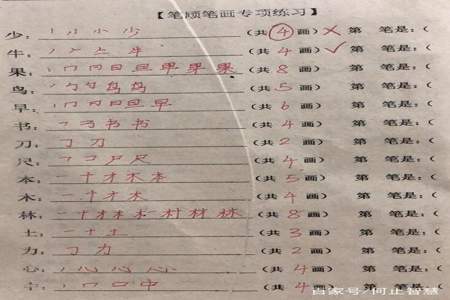 【笔顺笔画专项练习】
少：丨 小 小 少（共 4 画）✗ 第 笔是：（
牛：丿 𠂉 二 牛（共 4 画）✓ 第 笔是：（
果：丨 冂 冃 日 旦 甲 果 果（共 8 画） 第 笔是：（
鸟：勹 鸟 鸟（共 5 画） 第 笔是：（
早：丨 冂 日 日 旦 早（共 6 画） 第 笔是：（
书：㇇ 书 书（共 4 画） 第 笔是：（
刀：㇆ 刀（共 2 画） 第 笔是：（
尺：㇕ コ 尸 尺（共 4 画） 第 笔是：（
本：一 十 才 木 本（共 5 画） 第 笔是：（
木：一 十 才 木（共 4 画） 第 笔是：（
林：一 十 才 木 林 林（共 8 画） 第 笔是：（
士：一 十 士（共 3 画） 第 笔是：（
力：㇆ 力（共 2 画） 第 笔是：（
心：丶 心 心 心（共 4 画） 第 笔是：（
丨 冂 口 中（共 4 画） 第 笔是：（
百家号/何止智慧